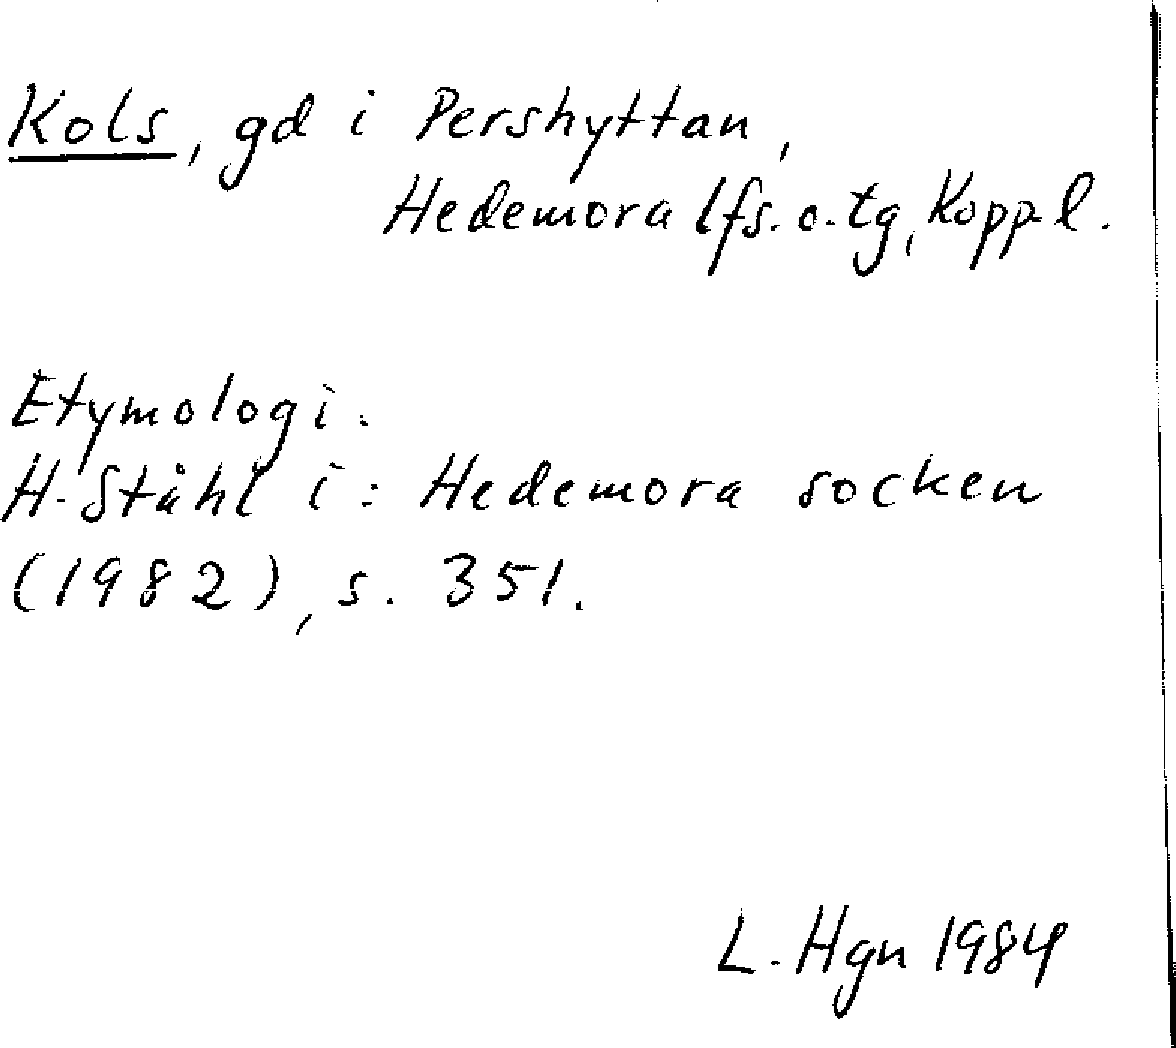 Kols, gd i Pershyttan,
Hedemora lfs. o. tg, Kopp. l.
Etymologi.
H. Ståhl i: Hedemora socken
(1982), s. 351.
L. Hgn 1984